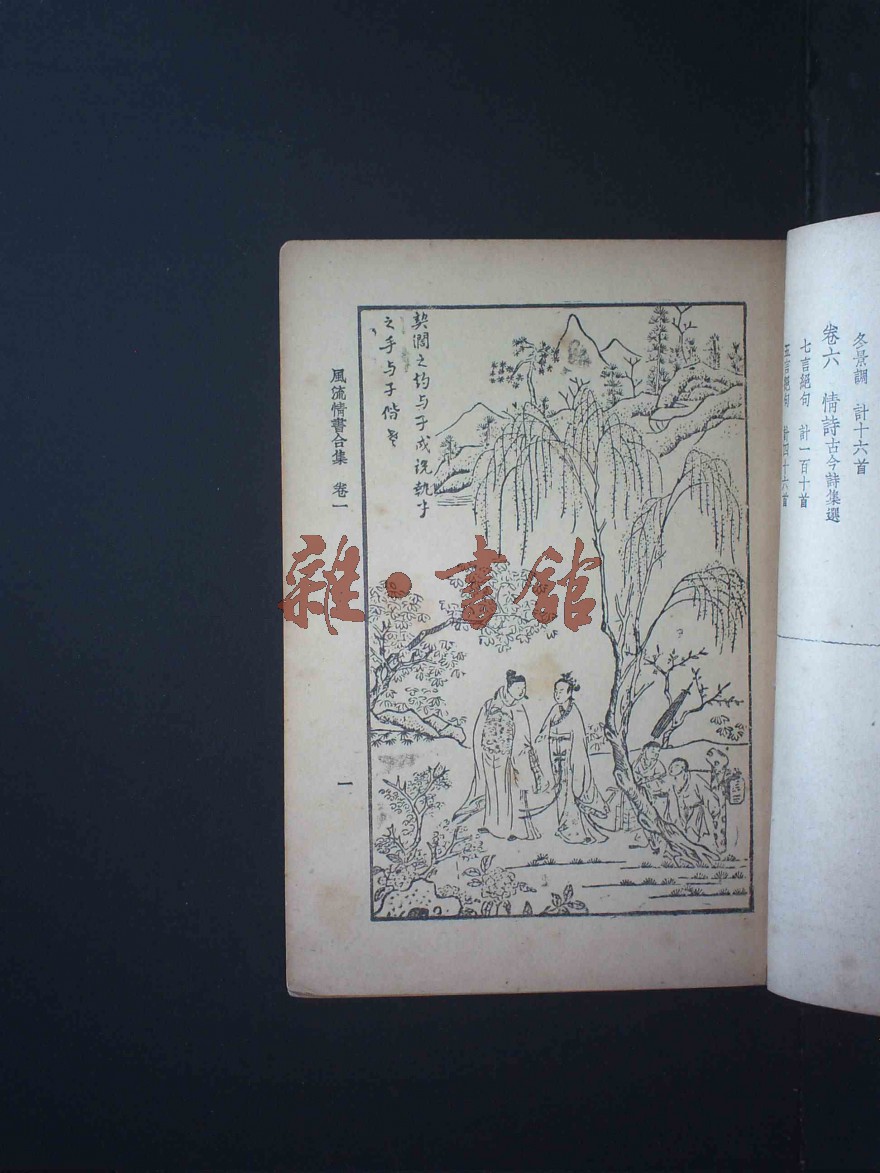 冬景調 計十六首
卷六 情詩古今詩集選
七言絕句 計一百十首
五言絕句 計四十六首
契闊之約与子成説執子
之手与子偕老
風流情書合集 卷一
一
雜·書館